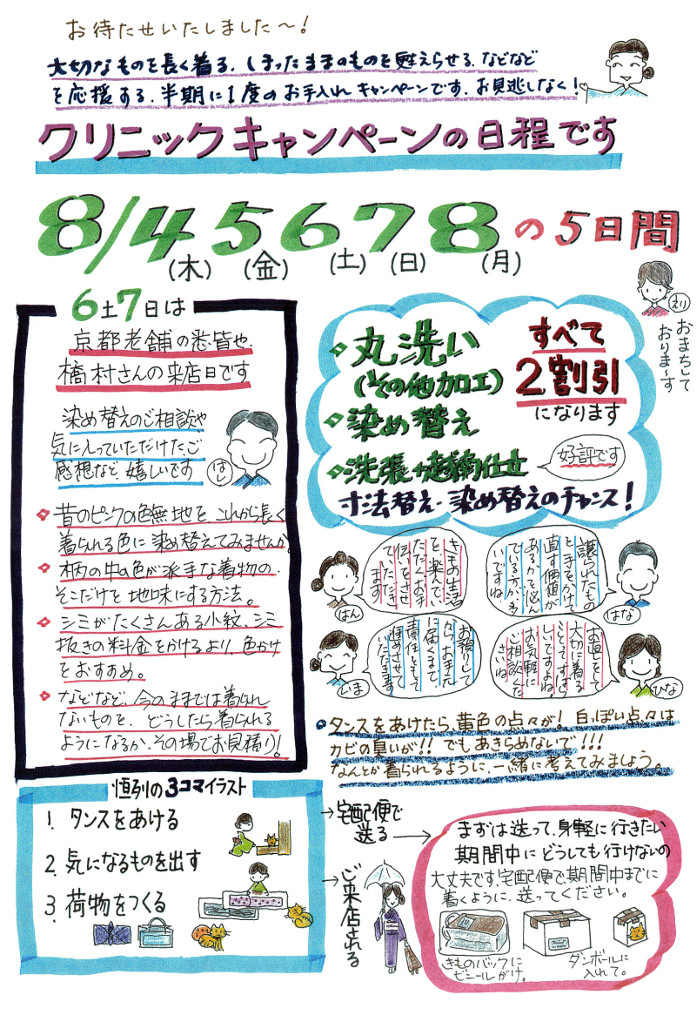 お待たせいたしました〜！
大切なものを長く着る、しまったままのものを甦えらせる、などなど
を応援する、半期に1度のお手入れキャンペーンです。お見逃しなく！
クリニックキャンペーンの日程です
8/4 5 6 7 8の5日間
(木) (金) (土) (日) (月)
えり
おまちして
おりま〜す
6土7日は
京都老舗の悉皆や、
橋村さんの来店日です
染め替えのご相談や
気に入っていただけた、ご
感想など、嬉しいです
はし
昔のピンクの色無地を、これから長く
着られる色に染め替えてみませんか。
柄の中の色が派手な着物の、
そこだけを地味にする方法。
シミがたくさんある小紋、シミ
抜きの料金をかけるより、色かけ
をおすすめ。
などなど、今のままでは着られ
ないものを、どうしたら着られる
ようになるか、その場でお見積り！
丸洗い
(その他加工)
染め替え
洗張+お仕立
すべて
2割引
になります
好評です
寸法替え・染め替えのチャンス！
きもの生活
を楽んで
いただくお手
伝いをさせ
ていただき
ます
はん
譲られたもの
と手をかけて
直す価値が
あるかを悩ん
でいる方が多
いですね
はな
お預りして
から、お手元
に届くまで、
責任をもって
進めさせて
いただきます
じま
お直しをして
大切に着る
ってとてもすばら
しいですよね
お気軽に
ご相談くだ
さいね
ひな
タンスをあけたら、黄色の点々が！白っぽい点々は
カビの臭いが!! でもあきらめないで!!!
なんとか着られるように、一緒に考えてみましょう。
恒例の3コマイラスト
1. タンスをあける
2. 気になるものを出す
3. 荷物をつくる
→宅配便で
送る
→ご来店される
まずは送って、身軽に行きたい
期間中にどうしても行けないの
大丈夫です、宅配便で、期間中までに
着くように、送ってください。
きものバックに
ビニールがけ。
ダンボールに
入れて。